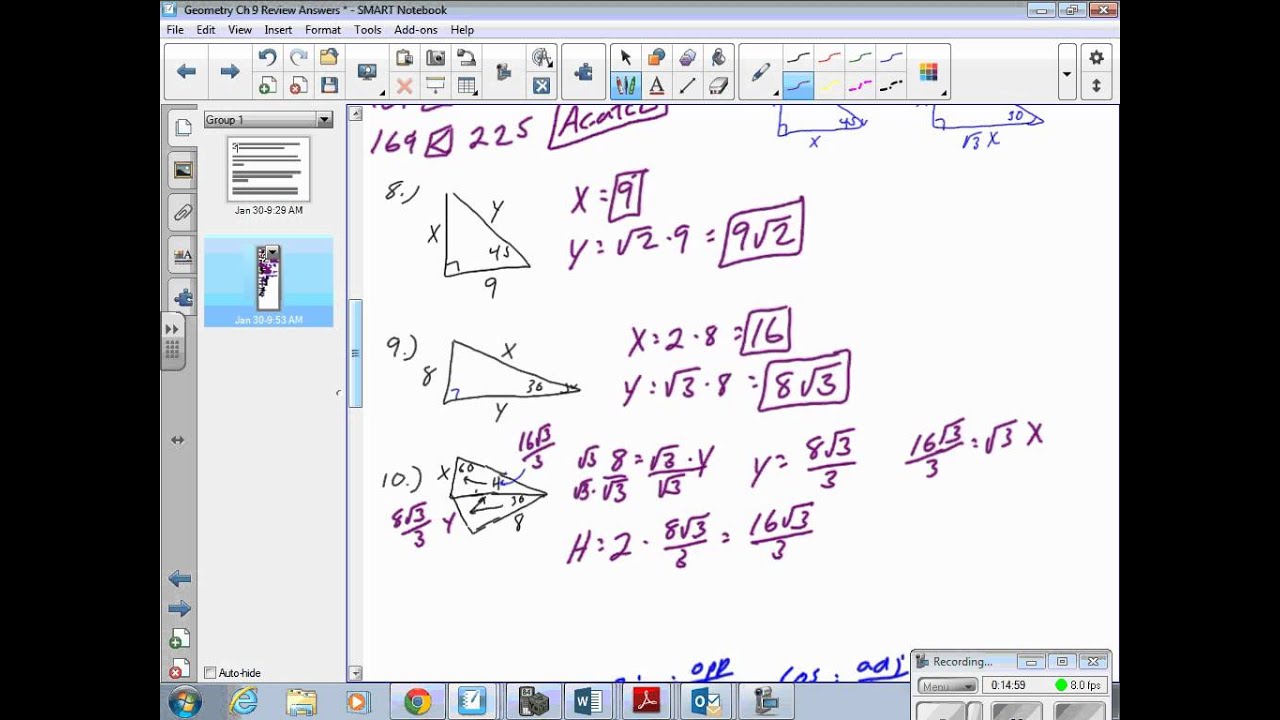 Geometry Ch 9 Review Answers * - SMART Notebook
File Edit View Insert Format Tools Add-ons Help
Group 1
Jan 30-9:29 AM
Jan 30-9:53 AM
Auto-hide
169 < 225 Acute
45
x
30
√3 x
8.)
x
y
45
9
x = 9
y = √2 · 9 = 9√2
9.)
8
x
30
y
x = 2 · 8 = 16
y = √3 · 8 = 8√3
10.)
x
60
H
16√3/3
30
8
y
8√3/3
√3/√3 · 8/√3 = √3 · y/√3
y = 8√3/3
16√3/3 = √3 x
H = 2 · 8√3/3 = 16√3/3
opp
adj
Recording...
Menu
0:14:59
8.0 fps